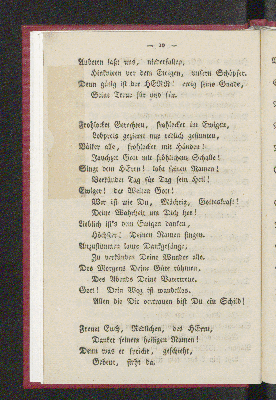 — 10 —
Anbeten laßt uns, niederfallen,
Hinknieen vor dem Ewigen, unserm Schöpfer.
Denn gütig ist der HERR! ewig seine Gnade,
Seine Treue für und für.
Frohlocket Gerechten, frohlocket im Ewigen,
Lobpreis geziemt nur redlich gesinnten,
Völker alle, frohlocket mit Händen!
Jauchzet Gott mit fröhlichem Schalle!
Singt dem HErrn! lobt seinen Namen!
Verkündet Tag für Tag sein Heil!
Ewiger! der Welten Gott!
Wer ist wie Du, Mächtig, Gotteskraft!
Deine Wahrheit um Dich her!
Lieblich ist's dem Ewigen danken,
Höchster! Deinen Namen singen.
Anzustimmen laute Dankgesänge,
Zu verkünden Deine Wunder alle.
Des Morgens Deine Güte rühmen,
Des Abends Deine Vatertreue.
Gott! Dein Weg ist wandellos.
Allen die Dir vertrauen bist Du ein Schild!
Freuet Euch, Redlichen, des HErrn,
Danket seinem heiligen Namen!
Denn was er spricht, geschieht,
Gebeut, steht da.